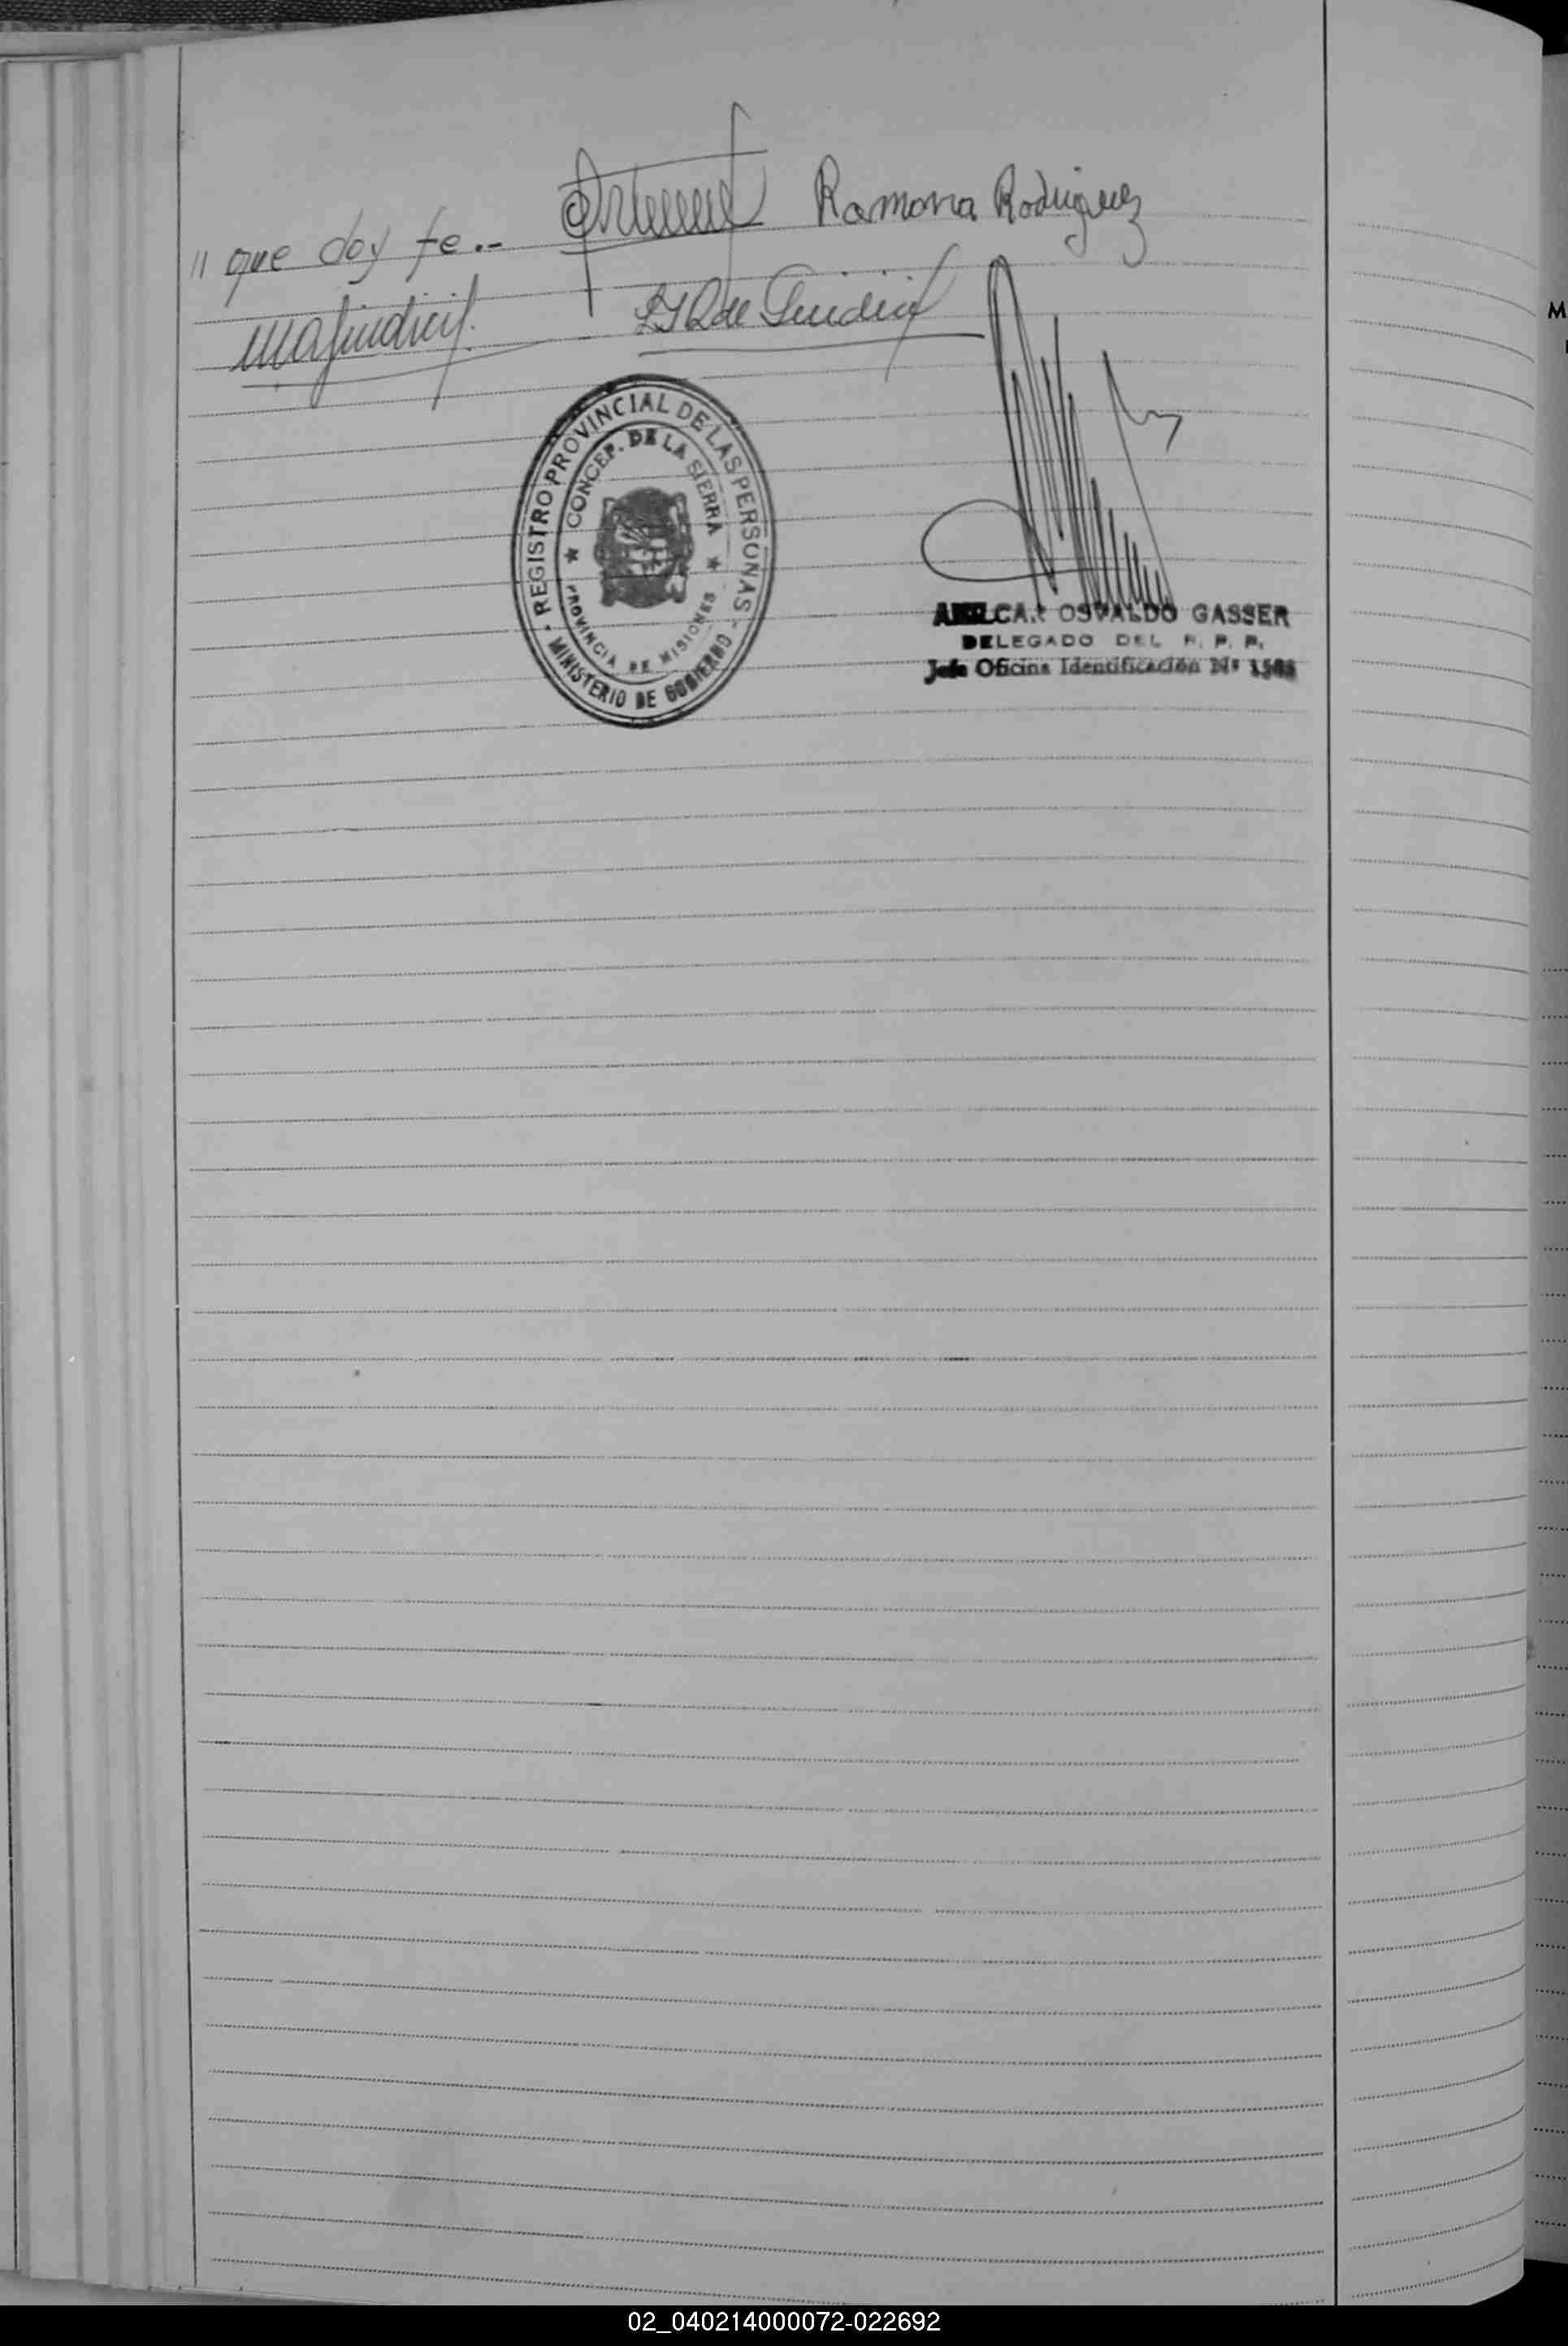 " que doy fe.-
Ramona Rodriguez
REGISTRO PROVINCIAL DE LAS PERSONAS
CONCEP. DE LA SIERRA
PROVINCIA DE MISIONES
MINISTERIO DE GOBIERNO
OSVALDO GASSER
DELEGADO DEL R. P. P.
Jefe Oficina Identificación Nº
M
02_040214000072-022692